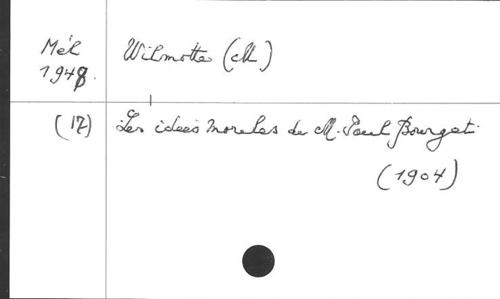 Mél
1948.
Wilmotte (M)
(17)
Les idées morales de M. Paul Bourget.
(1904)